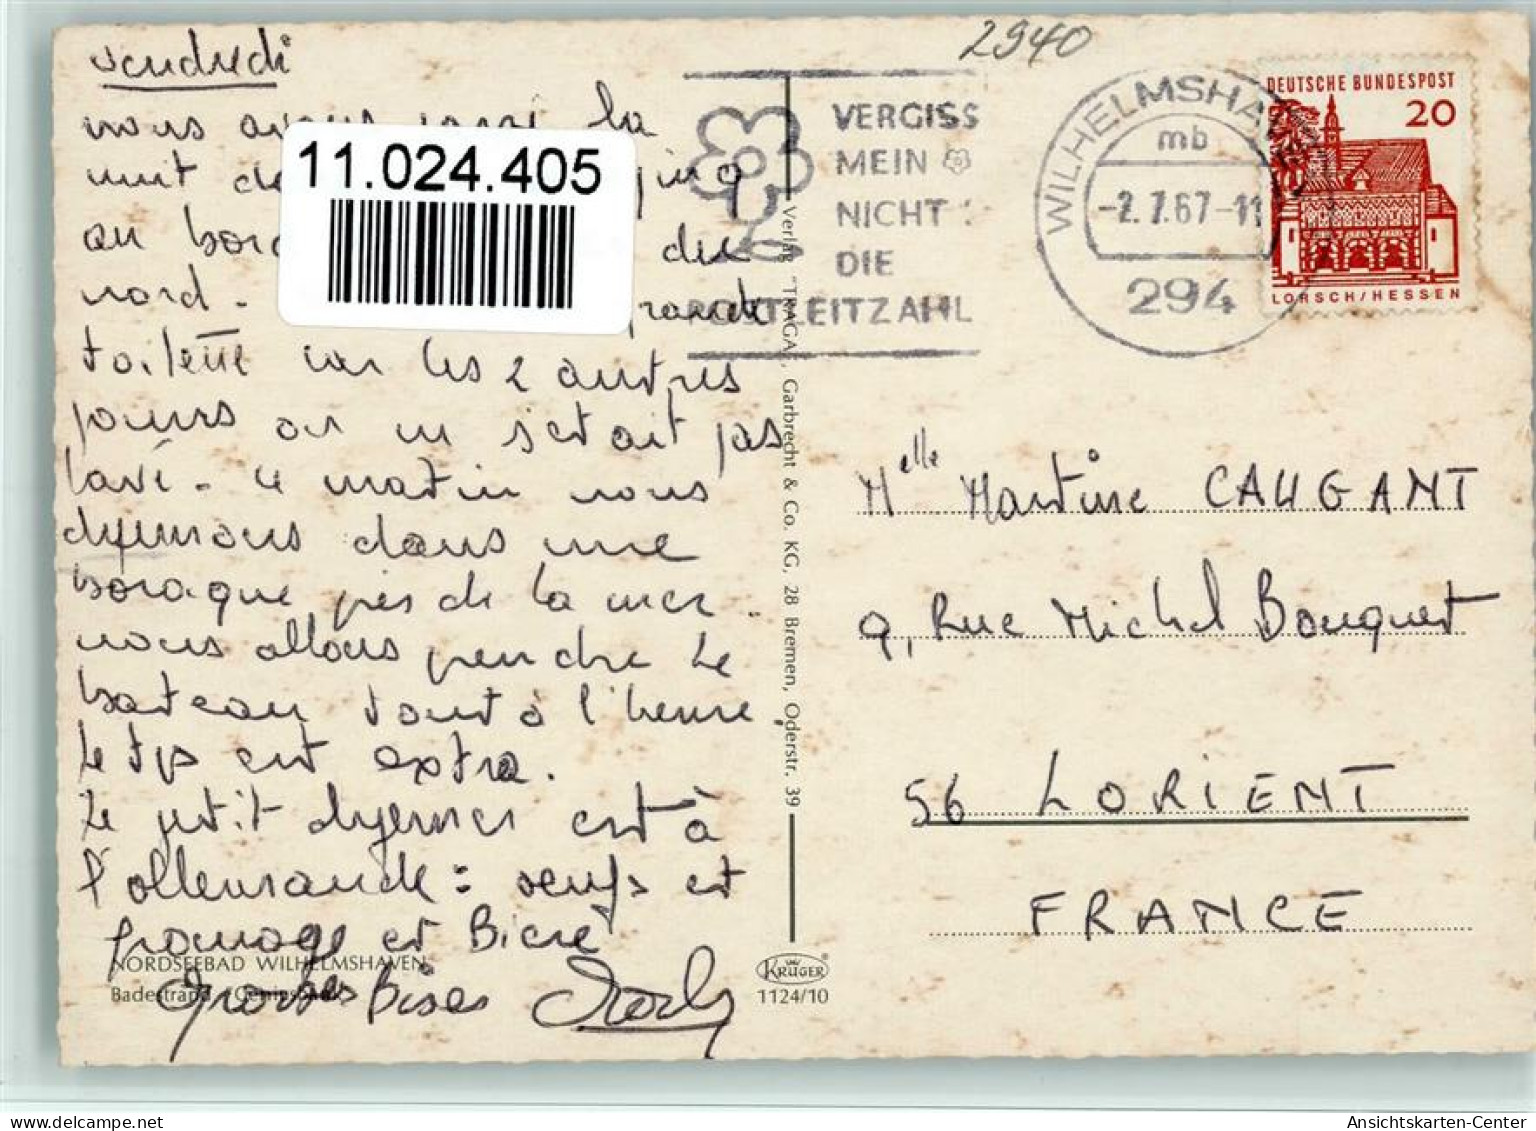 vendredi
nous avons passé la
nuit
au bord du
nord - grande
toilette car les 2 autres
jours on ne s'était pas
lavé. Le matin nous
déjeunons dans une
baraque près de la mer.
nous allons prendre le
bateau tout à l'heure.
Le tps est extra.
Le petit déjeuner est à
l'allemande : oeufs et
fromage et Bière
Grosses Bises
NORDSEEBAD WILHELMSHAVEN
Badestrand
11.024.405
Verlag "TRAGA", Garbrecht & Co. KG, 28 Bremen, Oderstr. 39
KRÜGER
1124/10
2940
VERGISS
MEIN
NICHT
DIE
POSTLEITZAHL
WILHELMSHA
mb
-2.7.67-11
294
DEUTSCHE BUNDESPOST
20
LORSCH/HESSEN
Melle Martine CAUGANT
9, Rue Michel Bouquet
56 LORIENT
FRANCE
Ansichtskarten-Center